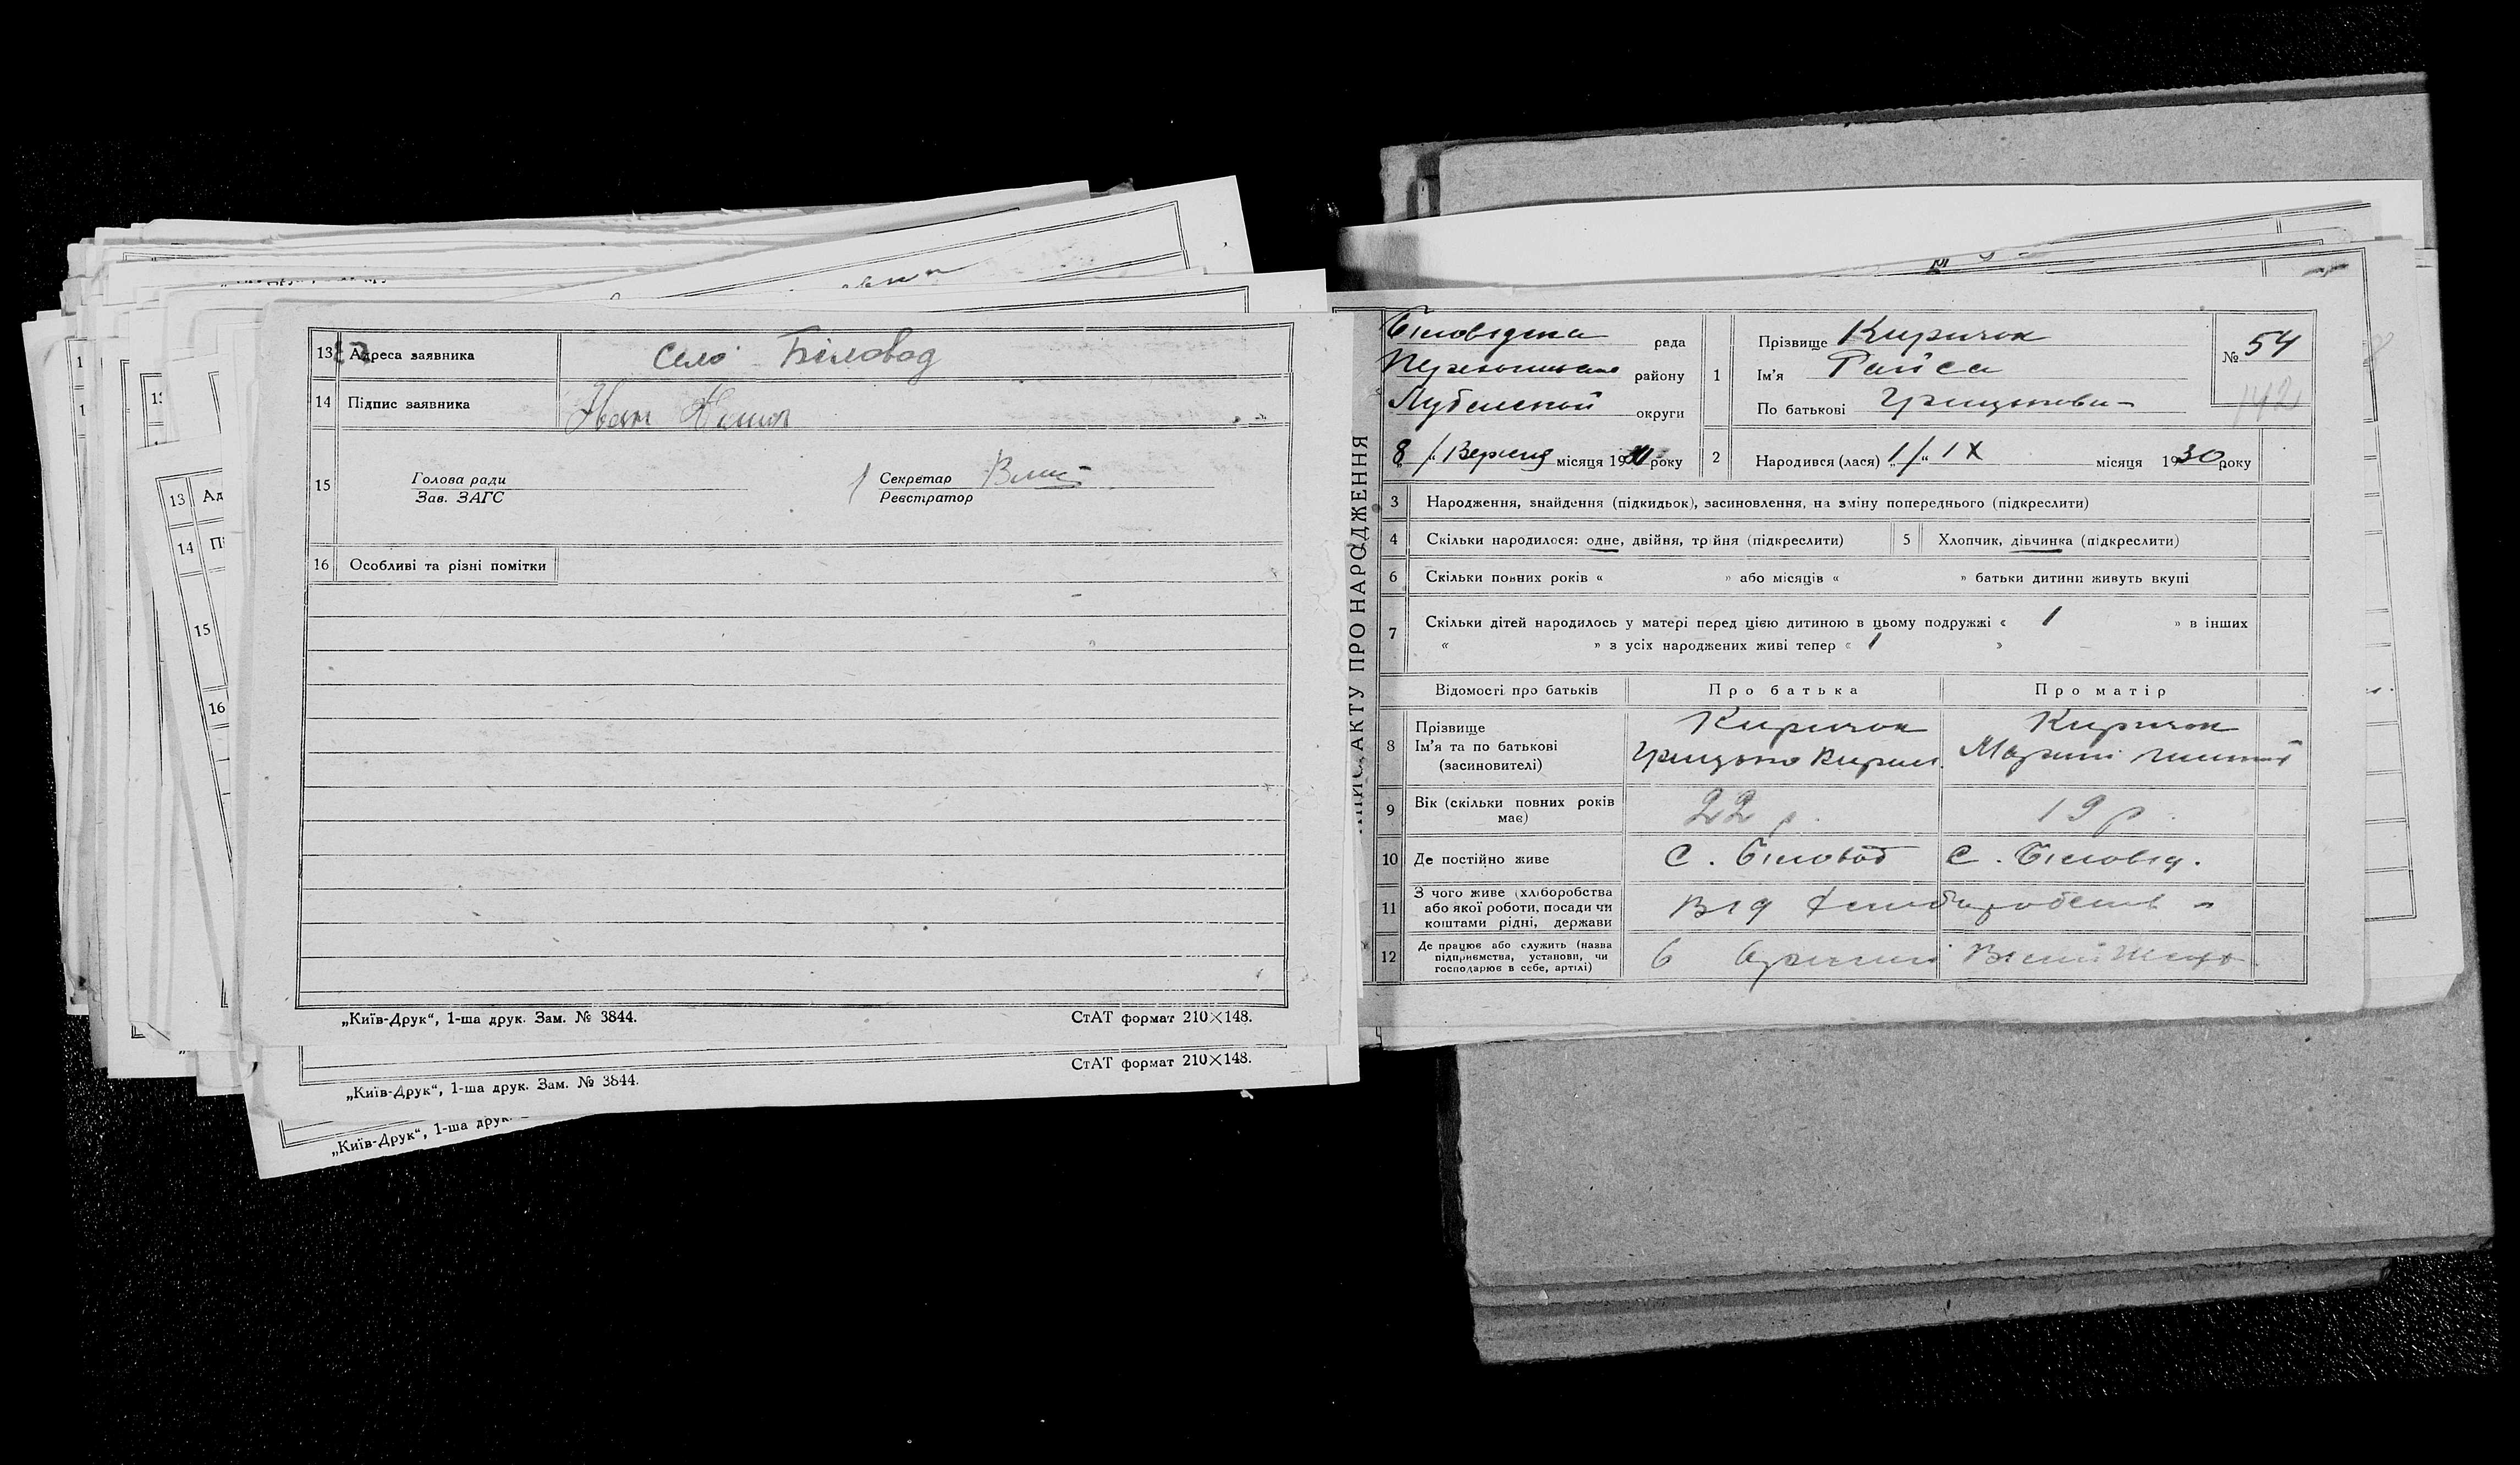 13 Адреса заявника Село Біловод
14 Підпис заявника Іван
15 Голова ради
Зав. ЗАГС
Секретар
Реєстратор
16 Особливі та різні помітки
„Київ-Друк“, 1-ша друк. Зам. № 3844. СтАТ формат 210×148.
СтАТ формат 210×148.
„Київ-Друк“, 1-ша друк. Зам. № 3844.
„Київ-Друк“, 1-ша друк.
13 Ад
14 Пі
15
16
АКТУ ПРО НАРОДЖЕННЯ
рада
району
Лубенской округи
8 / Вересня місяця 19 року
1 Прізвище Киричок
Ім'я Раиса
По батькові
№ 54
142
2 Народився (лася) „1/“ IX місяця 1930 року
3 Народження, знайдення (підкидьок), засиновлення, на зміну попереднього (підкреслити)
4 Скільки народилося: одне, двійня, трійня (підкреслити) 5 Хлопчик, дівчинка (підкреслити)
6 Скільки повних років « » або місяців « » батьки дитини живуть вкупі
7 Скільки дітей народилось у матері перед цією дитиною в цьому подружжі « 1 » в інших
« » з усіх народжених живі тепер « 1 »
Відомості про батьків Про батька Про матір
8 Прізвище Киричок Киричок
Ім'я та по батькові
(засиновителі)
9 Вік (скільки повних років має) 22 р. 19 р.
10 Де постійно живе С. Біловод С. Біловід.
11 З чого живе (хліборобства
або якої роботи, посади чи
коштами рідні, держави
Від
12 Де працює або служить (назва
підприємства, установи, чи
господарює в себе, артілі)